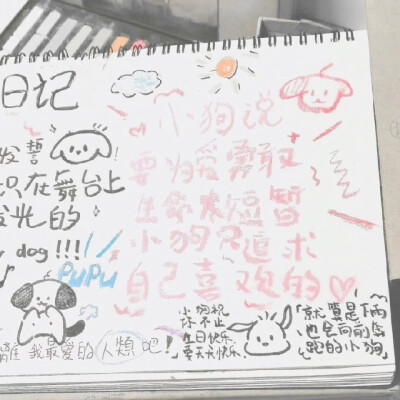 日记
发誓
!
只在舞台上
发光的
dog!!!
PUPU
小狗说
要为爱勇敢
生命很短暂
小狗只追求
自己喜欢的
我最爱的人類吧!
小狗祝
你不止
生日快乐
天天快乐
「就算是下雨
也会向前奔
跑的小狗」